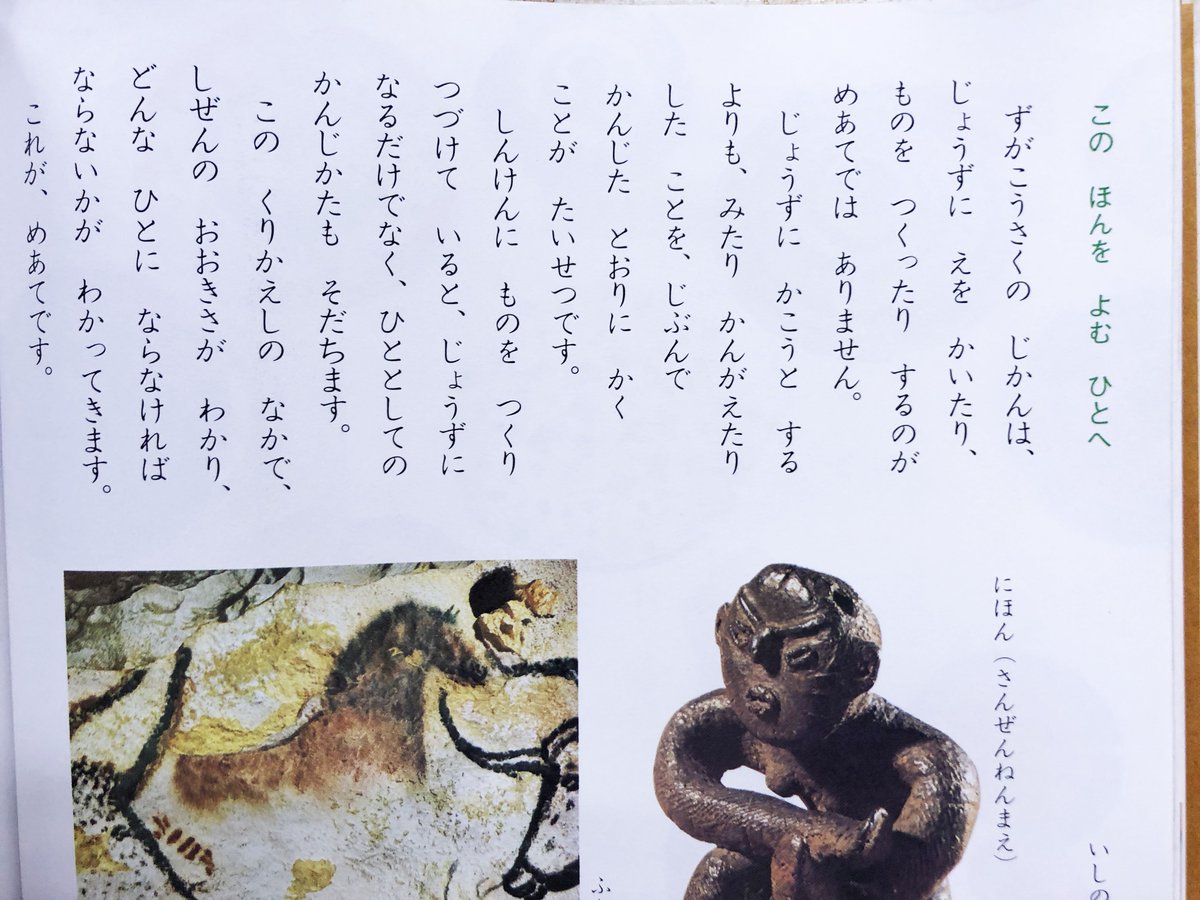 この　ほんを　よむ　ひとへ
ずがこうさくの　じかんは、
じょうずに　えを　かいたり、
ものを　つくったり　するのが
めあてでは　ありません。
じょうずに　かこうと　する
よりも、みたり　かんがえたり
した　ことを、じぶんで
かんじた　とおりに　かく
ことが　たいせつです。
しんけんに　ものを　つくり
つづけて　いると、じょうずに
なるだけでなく、ひととしての
かんじかたも　そだちます。
この　くりかえしの　なかで、
しぜんの　おおきさが　わかり、
どんな　ひとに　ならなければ
ならないかが　わかってきます。
これが、めあてです。
いしの
にほん（さんぜんねんまえ）
ふ